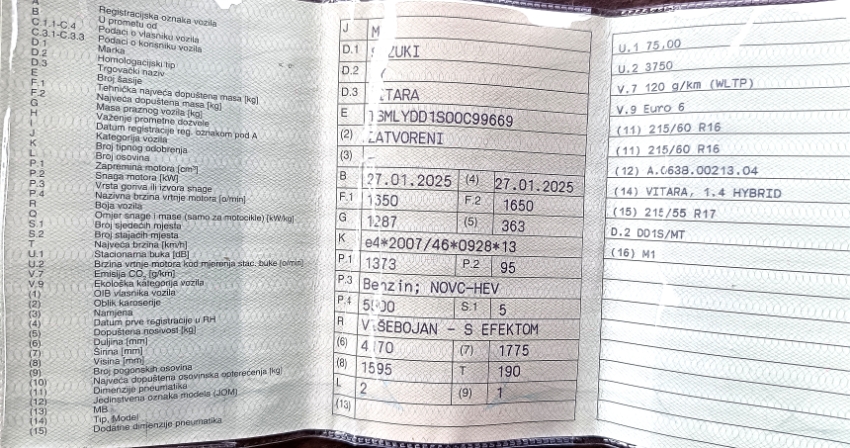 A
B Registracijska oznaka vozila
C.1.1-C.4 U prometu od
C.3.1-C.3.3 Podaci o vlasniku vozila
D.1 Podaci o korisniku vozila
D.2 Marka
D.3 Homologacijski tip
E Trgovački naziv
F.1 Broj šasije
F.2 Tehnička najveća dopuštena masa [kg]
G Najveća dopuštena masa [kg]
H Masa praznog vozila [kg]
I Važenje prometne dozvole
J Datum registracije reg. oznakom pod A
K Kategorija vozila
L Broj tipnog odobrenja
P.1 Broj osovina
P.2 Zapremina motora [cm³]
P.3 Snaga motora [kW]
P.4 Vrsta goriva ili izvora snage
R Nazivna brzina vrtnje motora [o/min]
Q Boja vozila
S.1 Omjer snage i mase (samo za motocikle) [kW/kg]
S.2 Broj sjedećih mjesta
T Broj stajaćih mjesta
U.1 Najveća brzina [km/h]
U.2 Stacionarna buka [dB]
V.7 Brzina vrtnje motora kod mjerenja stac. buke [o/min]
V.9 Emisija CO₂ [g/km]
(1) Ekološka kategorija vozila
(2) OIB vlasnika vozila
(3) Oblik karoserije
(4) Namjena
(5) Datum prve registracije u RH
(6) Dopuštena nosivost [kg]
(7) Duljina [mm]
(8) Širina [mm]
(9) Visina [mm]
(10) Broj pogonskih osovina
(11) Najveća dopuštena osovinska opterećenja [kg]
(12) Dimenzije pneumatika
(13) Jedinstvena oznaka modela (JOM)
(14) MB
(15) Tip, Model
Dodatne dimenzije pneumatika
J M
D.1 S ZUKI
D.2
D.3 TARA
E SMLYDD1S00C99669
(2) ZATVORENI
(3) -
B 27.01.2025 (4) 27.01.2025
F.1 1350 F.2 1650
G 1287 (5) 363
K e4*2007/46*0928*13
P.1 1373 P.2 95
P.3 Benzin; NOVC-HEV
P.4 5 00 S.1 5
R VIŠEBOJAN - S EFEKTOM
(6) 4 70 (7) 1775
(8) 1595 T 190
L 2 (9) 1
(13)
U.1 75,00
U.2 3750
V.7 120 g/km (WLTP)
V.9 Euro 6
(11) 215/60 R16
(11) 215/60 R16
(12) A.0638.00213.04
(14) VITARA, 1.4 HYBRID
(15) 215/55 R17
D.2 DD1S/MT
(16) M1